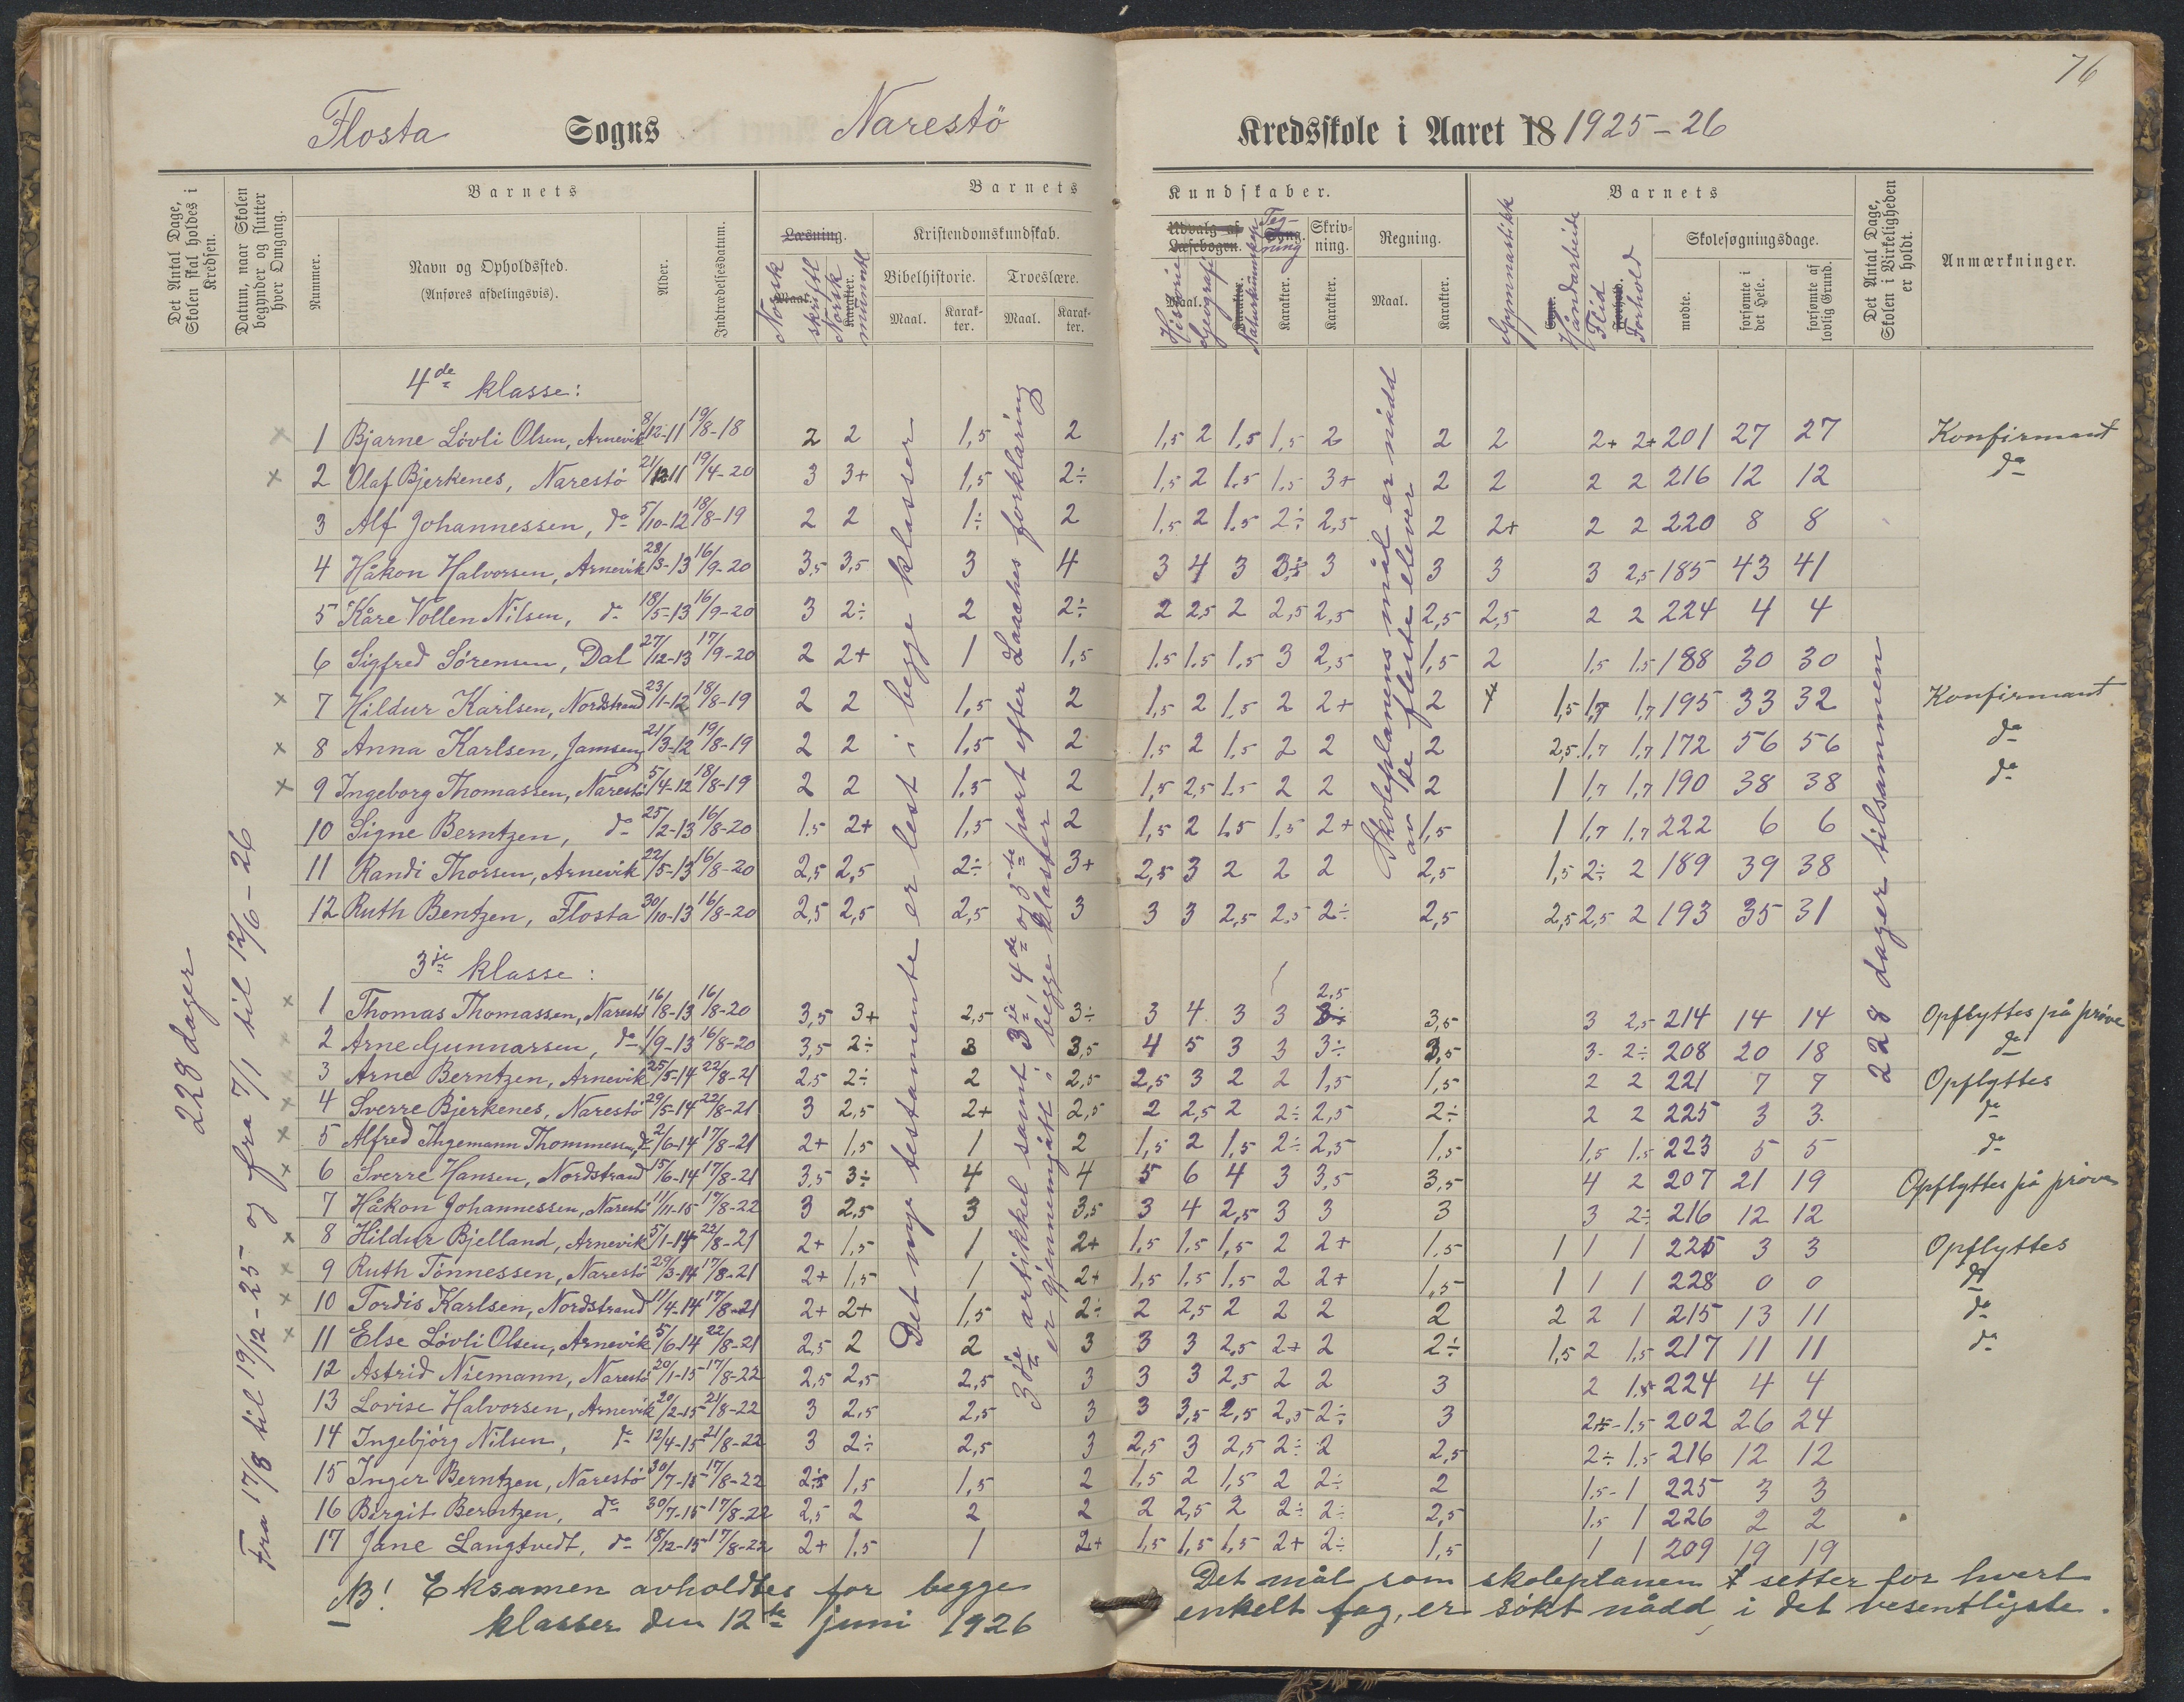 76
Flosta Sogns Narestö Kredsskole i Aaret 18 1925-26
Det Antal Dage, Skolen skal holdes i Kredsen.
Datum, naar Skolen begynder og slutter hver Omgang.
Nummer.
Barnets
Navn og Opholdssted.
(Anføres afdelingsvis).
Alder.
Indtrædelsesdatum.
Barnets Kundskaber.
Læsning.
Maal. Norsk skriftl
Karakter. Norsk muntl
Kristendomskundskab.
Bibelhistorie. Troeslære.
Maal. Karakter. Maal. Karakter.
Udvalg af Læsebogen.
Maal. Historie Geografi
Karakter. Naturkunnskap
Sang. Tegning
Karakter.
Skrivning.
Karakter.
Regning.
Maal. Karakter.
Barnets
Gymnastikk
Evne. Håndarbeide
Flid
Forhold. Forhold
Skolesøgningsdage.
mødte.
forsømte i det Hele.
forsømte af lovlig Grund.
Det Antal Dage, Skolen i Virkeligheden er holdt.
Anmærkninger.
228 dager
Fra 17/8 til 19/12-25 og fra 7/1 til 12/6-26
Det nye testamente er lest i begge klasser
3die artikkel samt 3je, 4de og 5te part efter Laaches forklaring
er gjennemgått i begge klasser
Skoleplanens mål er nådd
av de fleste elever
228 dager tilsammen
4de klasse:
× 1 Bjarne Lövli Olsen, Arnevik 8/12-11 19/8-18 2 2 1,5 2 1,5 2 1,5 1,5 2 2 2 2+ 2+ 201 27 27 Konfirmant
× 2 Olaf Bjerkenes, Narestö 21/12-11 19/4-20 3 3+ 1,5 2÷ 1,5 2 1.5 1.5 3+ 2 2 2 2 216 12 12 do
3 Alf Johannessen, do 5/10-12 18/8-19 2 2 1÷ 2 1,5 2 1.5 2÷ 2,5 2 2+ 2 2 220 8 8
4 Håkon Halvorsen, Arnevik 28/3-13 16/9-20 3,5 3,5 3 4 3 4 3 3÷ 3 3 3 3 2,5 185 43 41
5 Kåre Vollen Nilsen, do 18/5-13 16/9-20 3 2÷ 2 2÷ 2 2,5 2 2,5 2,5 2,5 2,5 2 2 224 4 4
6 Sigfred Sörensen, Dal 27/12-13 17/9-20 2 2+ 1 1,5 1.5 1.5 1.5 3 2,5 1,5 2 1,5 1.5 188 30 30
× 7 Hildur Karlsen, Nordstrand 23/1-12 18/8-19 2 2 1,5 2 1,5 2 1,5 2 2+ 2 1,5 1,7 1,7 195 33 32 Konfirmant
× 8 Anna Karlsen, Jamsøy 21/3-12 19/8-19 2 2 1,5 2 1.5 2 1.5 2 2 2 2,5 1.7 1,7 172 56 56 do
× 9 Ingeborg Thomassen, Narestö 5/4-12 18/8-19 2 2 1.5 2 1,5 2,5 1.5 2 2 2 1 1,7 1,7 190 38 38 do
10 Signe Berntzen, do 25/2-13 16/8-20 1.5 2+ 1,5 2 1,5 2 1,5 1,5 2+ 1,5 1 1,7 1.7 222 6 6
11 Randi Thorsen, Arnevik 22/5-13 16/8-20 2,5 2,5 2÷ 3+ 2,5 3 2 2 2 2,5 1,5 2÷ 2 189 39 38
12 Ruth Bentzen, Flosta 30/10-13 16/8-20 2,5 2,5 2,5 3 3 3 2,5 2,5 2÷ 2,5 2,5 2,5 2 193 35 31
3je klasse:
× 1 Thomas Thomassen, Narestö 16/8-13 16/8-20 3,5 3+ 2,5 3÷ 3 4 3 3 2,5 3,5 3 2,5 214 14 14 Opflyttes på prøve
× 2 Arne Gunnarsen, do 1/9-13 16/8-20 3,5 2÷ 3 3,5 4 5 3 3 3÷ 3,5 3 2÷ 208 20 18 do
× 3 Arne Berntzen, Arnevik 25/5-14 22/8-21 2,5 2÷ 2 2,5 2,5 3 2 2 1,5 1,5 2 2 221 7 7 Opflyttes
× 4 Sverre Bjerkenes, Narestö 29/5-14 22/8-21 3 2,5 2+ 2,5 2 2,5 2 2÷ 2,5 2÷ 2 2 225 3 3 do
× 5 Alfred Thgemann Thommesen, do 2/6-14 17/8-21 2+ 1,5 1 2 1,5 2 1,5 2÷ 2,5 1,5 1,5 1.5 223 5 5 do
× 6 Sverre Hansen, Nordstrand 15/6-14 17/8-21 3,5 3÷ 4 4 5 6 4 3 3,5 3,5 4 2 207 21 19 Opflyttes på prøve
7 Håkon Johannessen, Narestö 11/11-15 17/8-22 3 2,5 3 3,5 3 4 2,5 3 3 3 3 2÷ 216 12 12
× 8 Hildur Bjelland, Arnevik 5/1-14 22/8-21 2+ 1,5 1 2+ 1,5 1.5 1,5 2 2+ 1.5 1 1 1 225 3 3 Opflyttes
× 9 Ruth Tönnessen, Narestö 29/3-14 17/8-21 2+ 1,5 1 2+ 1,5 1.5 1.5 2 2+ 1,5 1 1 1 228 0 0 do
× 10 Tordis Karlsen, Nordstrand 11/4-14 17/8-21 2+ 2+ 1,5 2÷ 2 2,5 2 2 2 2 2 2 1 215 13 11 do
× 11 Else Lövli Olsen, Arnevik 5/6-14 22/8-21 2,5 2 2 3 3 3 2,5 2+ 2 2÷ 1,5 2 1,5 217 11 11 do
12 Astrid Niemann, Narestö 20/1-15 17/8-22 2,5 2,5 2,5 3 3 3 2,5 2 2 3 2 1.5 224 4 4
13 Lovise Halvorsen, Arnevik 20/2-15 21/8-22 3 2,5 2,5 3 3 3,5 2,5 2,5 2÷ 3 2÷ 1.5 202 26 24
14 Ingebjörg Nilsen, do 12/4-15 21/8-22 3 2÷ 2,5 3 2,5 3 2,5 2÷ 2 2,5 2÷ 1.5 216 12 12
15 Inger Berntzen, Narestö 30/7-15 17/8-22 2,5 1,5 1,5 2 1.5 2 1,5 2 2÷ 2 1.5 1 225 3 3
16 Bergit Berntzen, do 30/7-15 17/8-22 2,5 2 2 2 2 2,5 2 2÷ 2÷ 2,5 1.5 1 226 2 2
17 Jane Langtvedt, do 18/12-15 17/8-22 2+ 1.5 1 2+ 1,5 1,5 1,5 2+ 2÷ 1,5 1 1 209 19 19
NB! Eksamen avholdtes for begge
klasser den 12te juni 1926
Det mål som skoleplanen setter for hvert
enkelt fag, er søkt nådd i det vesentligste.